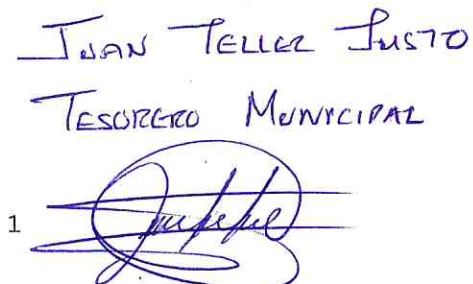 JUAN TELLEZ JUSTO
TESORERO MUNICIPAL
1